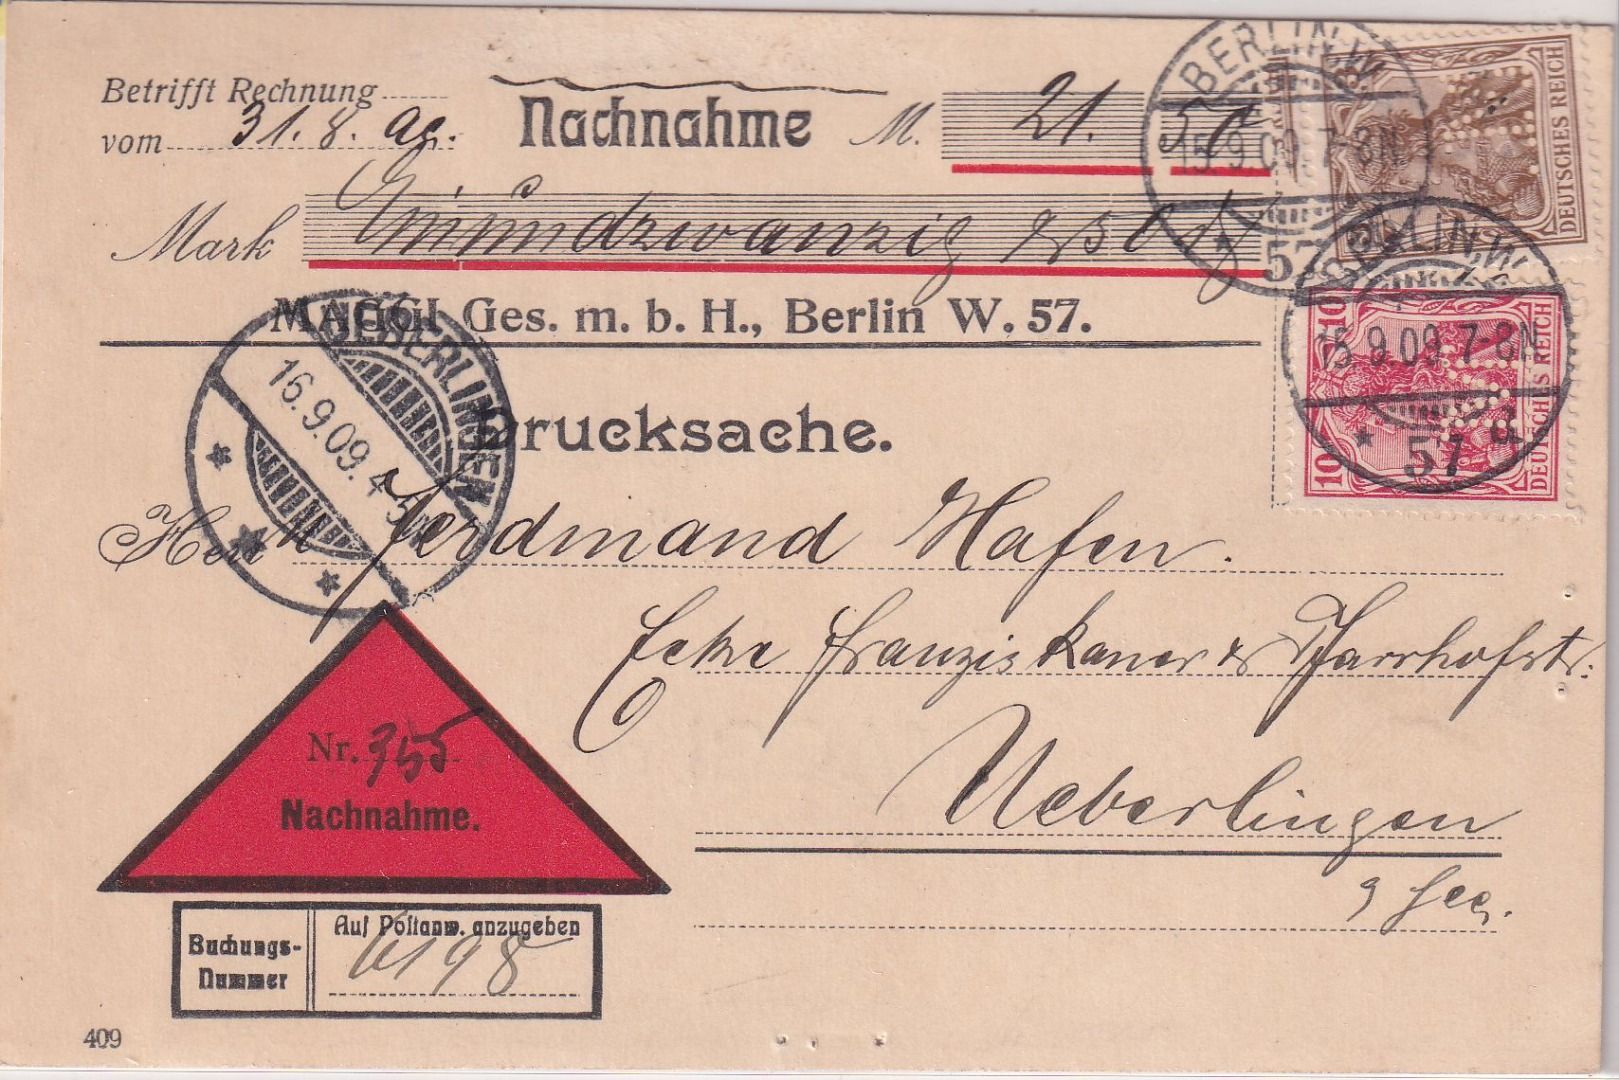 Betrifft Rechnung
vom 31. 8. 09.
Nachnahme M. 21. 50
Mark Einundzwanzig & 50
MAGGI Ges. m. b. H., Berlin W. 57.
Drucksache.
Herrn Ferdinand Hafen.
Ecke Franziskaner & Pfarrhofstr.
Ueberlingen
Nr. 755
Nachnahme.
Buchungs-
Nummer
Auf Postanw. anzugeben
6198
409
BERLIN, W.
15.9.09.7-8N
57
DEUTSCHES REICH
BERLIN, W.
15.9.09.7-8N
* 57 d
10 10
DEUTSCHES REICH
UEBERLINGEN
16.9.09.4-5N